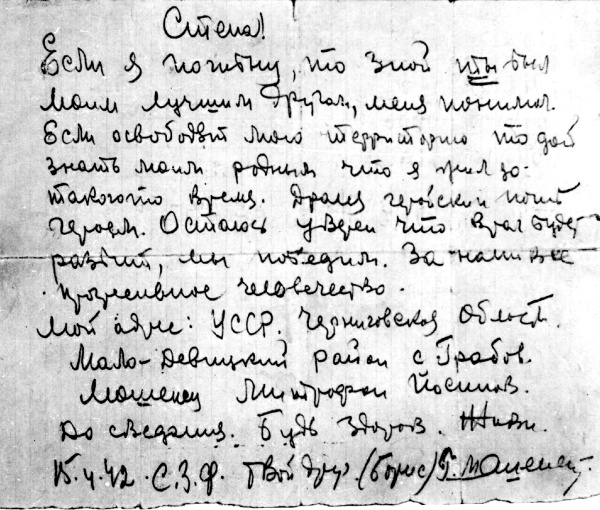 Степа!
Если я погибну, то знай ты был
моим лучшим другом, меня понимал.
Если освободят мою территорию то дай
знать моим родным что я жил до-
такогото время. Дрался геройски и погиб
героем. Остаюсь уверен что враг будет
разбит, мы победим. За нами все
прогрессивное человечество.
Мой адрес: УССР. Черниговская Область.
Мало-Девицкий район с Грабов.
Мошенец Митрофан Йосипов.
До сведания. Будь здоров. Живи.
15.4.42. С.З.Ф. Твой друг (Борис) Мошенец.